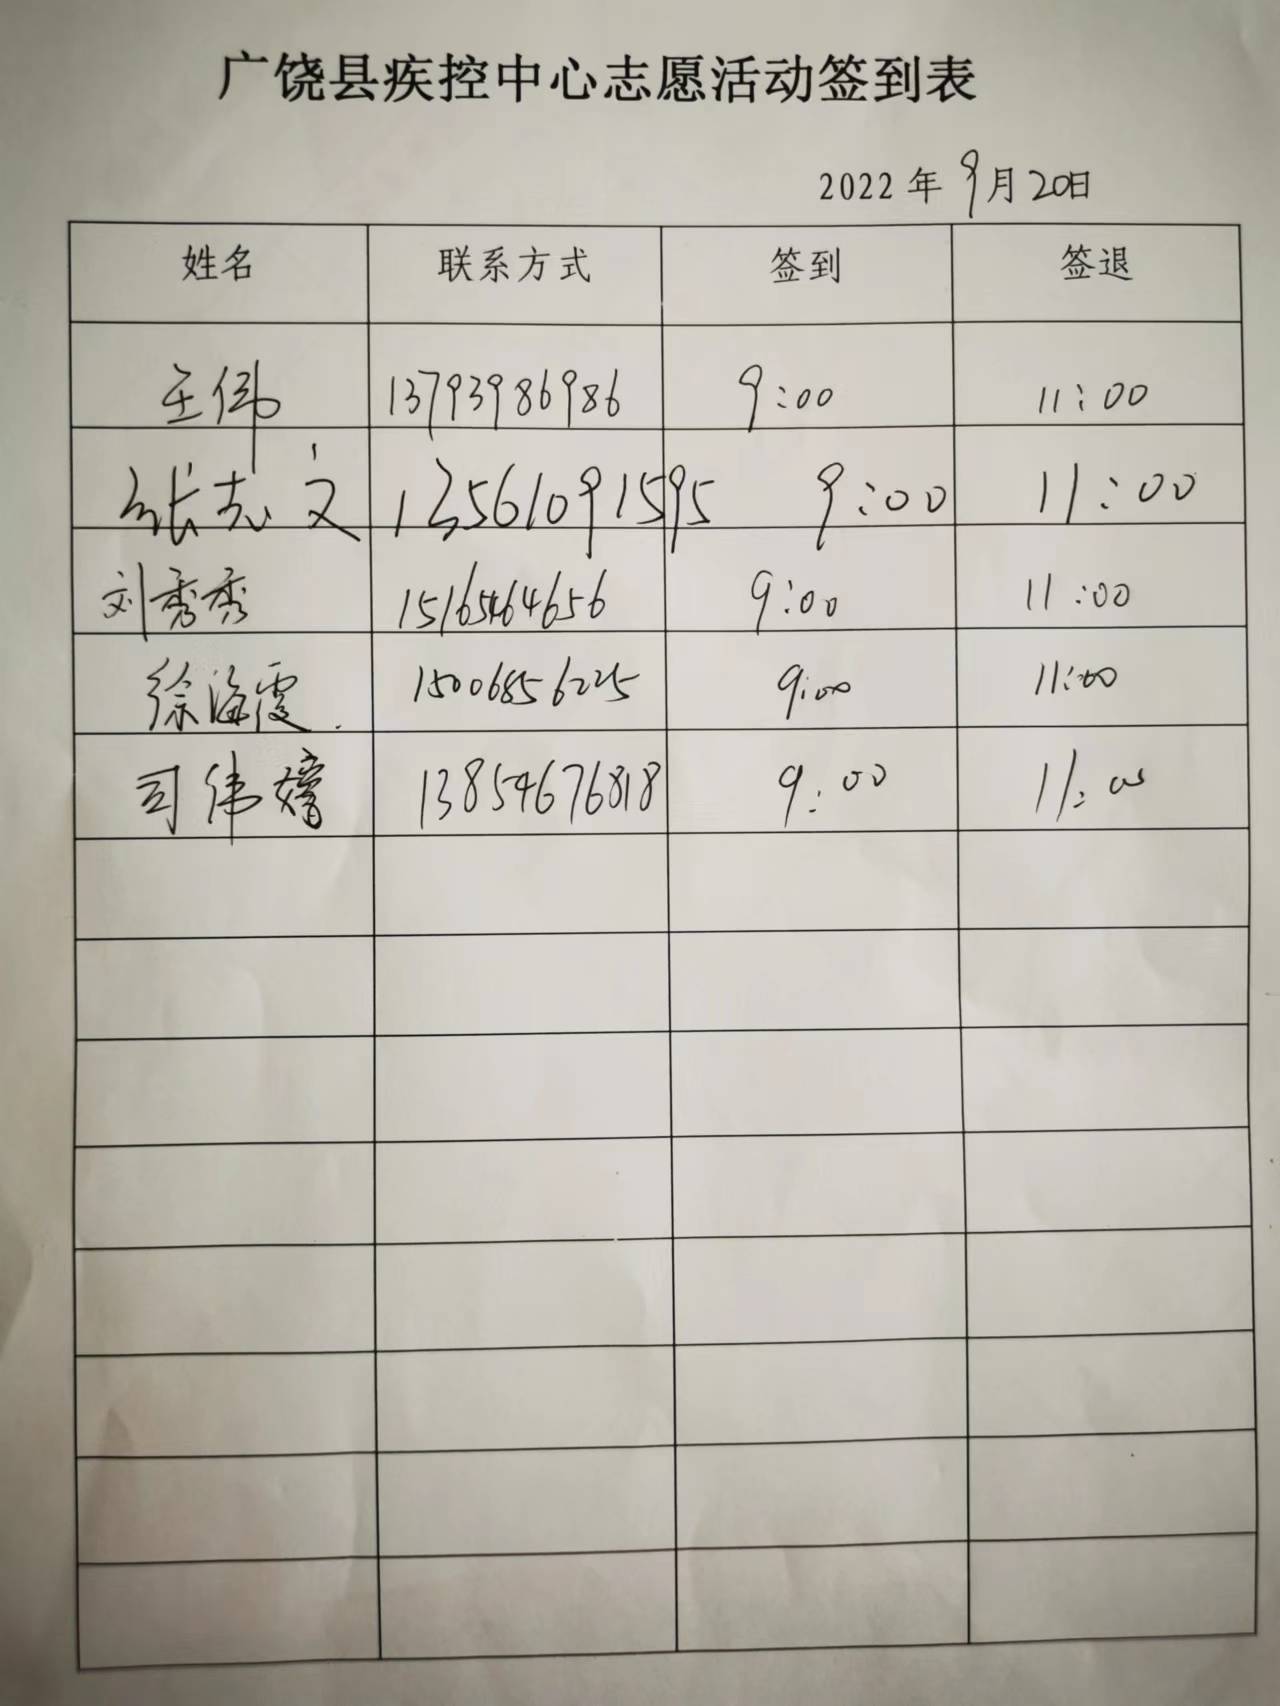 广饶县疾控中心志愿活动签到表
2022年9月20日
姓名 联系方式 签到 签退
王伟 13793986986 9:00 11:00
张志文 13561091595 9:00 11:00
刘秀秀 15165464656 9:00 11:00
徐海霞 15006856225 9:00 11:00
司伟 13854676818 9:00 11:00